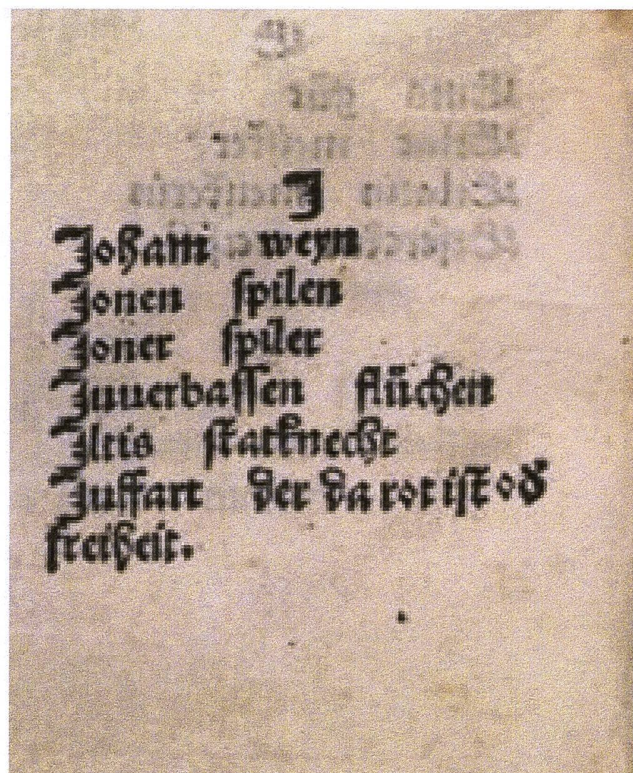 J
Joham weyn
Jonen ſpilen
Joner ſpiler
Juuerbaſſen flüchen
Jltis ſtatknecht
Juffart der da rot iſt od
freiheit.